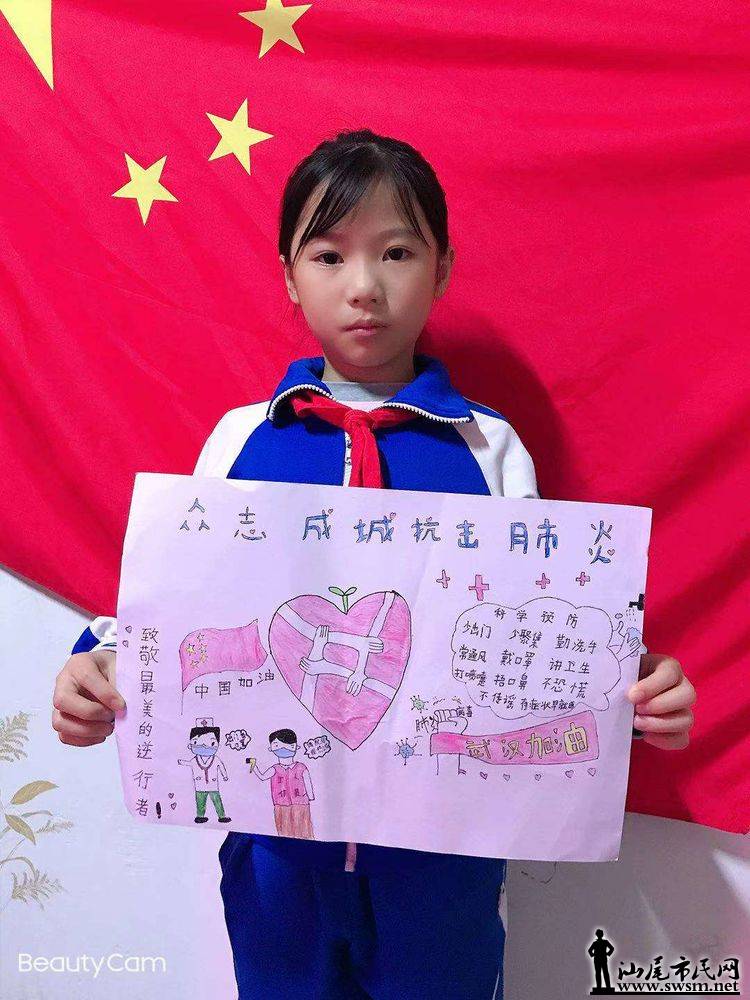 众志成城抗击肺炎
致敬最美的逆行者!
中国加油
科学预防
少出门 少聚集 勤洗手
常通风 戴口罩 讲卫生
打喷嚏 捂口鼻 不恐慌
不传谣
肺 病毒
武汉加油
BeautyCam
汕尾市民网
www.swsm.net